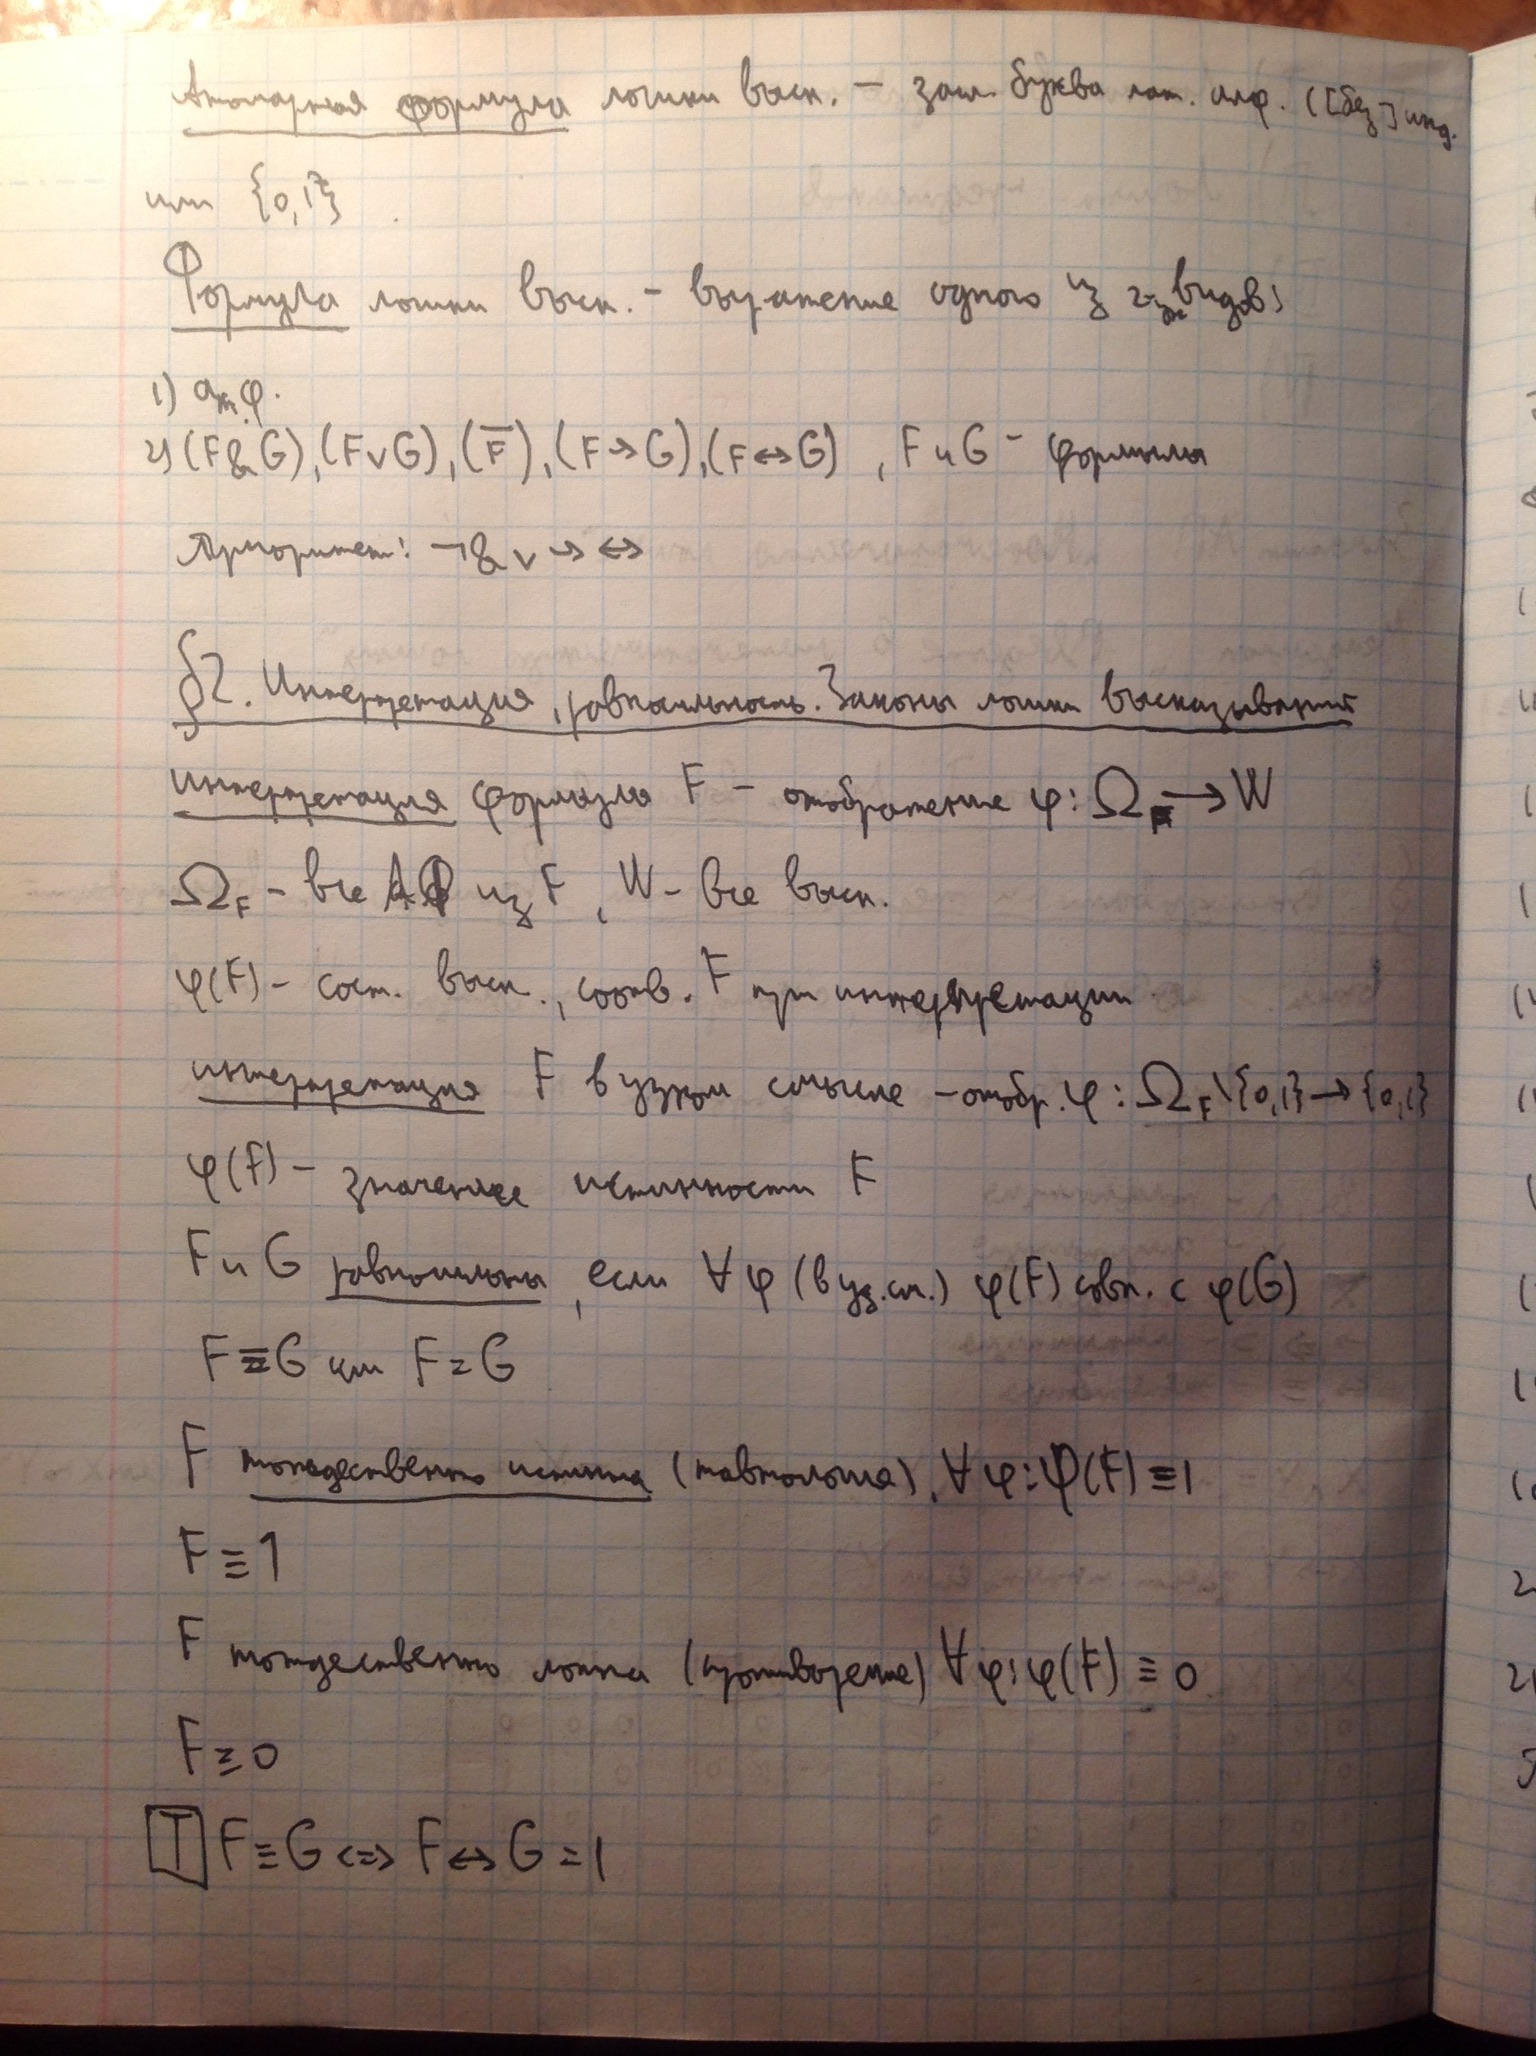 Атомарная формула логики выск. – загл. буква лат. алф. ([без] инд.
или {0,1}
Формула логики выск. – выражение одного из 2-х видов:
1) ат. ф.
2) (F&G), (F∨G), (F̅), (F→G), (F↔G), F и G – формулы
Приоритет: ¬ & ∨ → ↔
§2. Интерпретация, равносильность. Законы логики высказываний
интерпретация формулы F – отображение φ: Ω_F → W
Ω_F – все АФ из F, W – все выск.
φ(F) – сост. выск., соотв. F при интерпретации
интерпретация F в узком смысле – отобр. φ: Ω_F \ {0,1} → {0,1}
φ(F) – значение истинности F
F и G равносильны, если ∀φ (в уз. см.) φ(F) совп. с φ(G)
F≡G или F=G
F тождественно истина (тавтология), ∀φ: φ(F)≡1
F≡1
F тождественно ложна (противоречие) ∀φ: φ(F)≡0
F≡0
T F≡G <=> F↔G=1